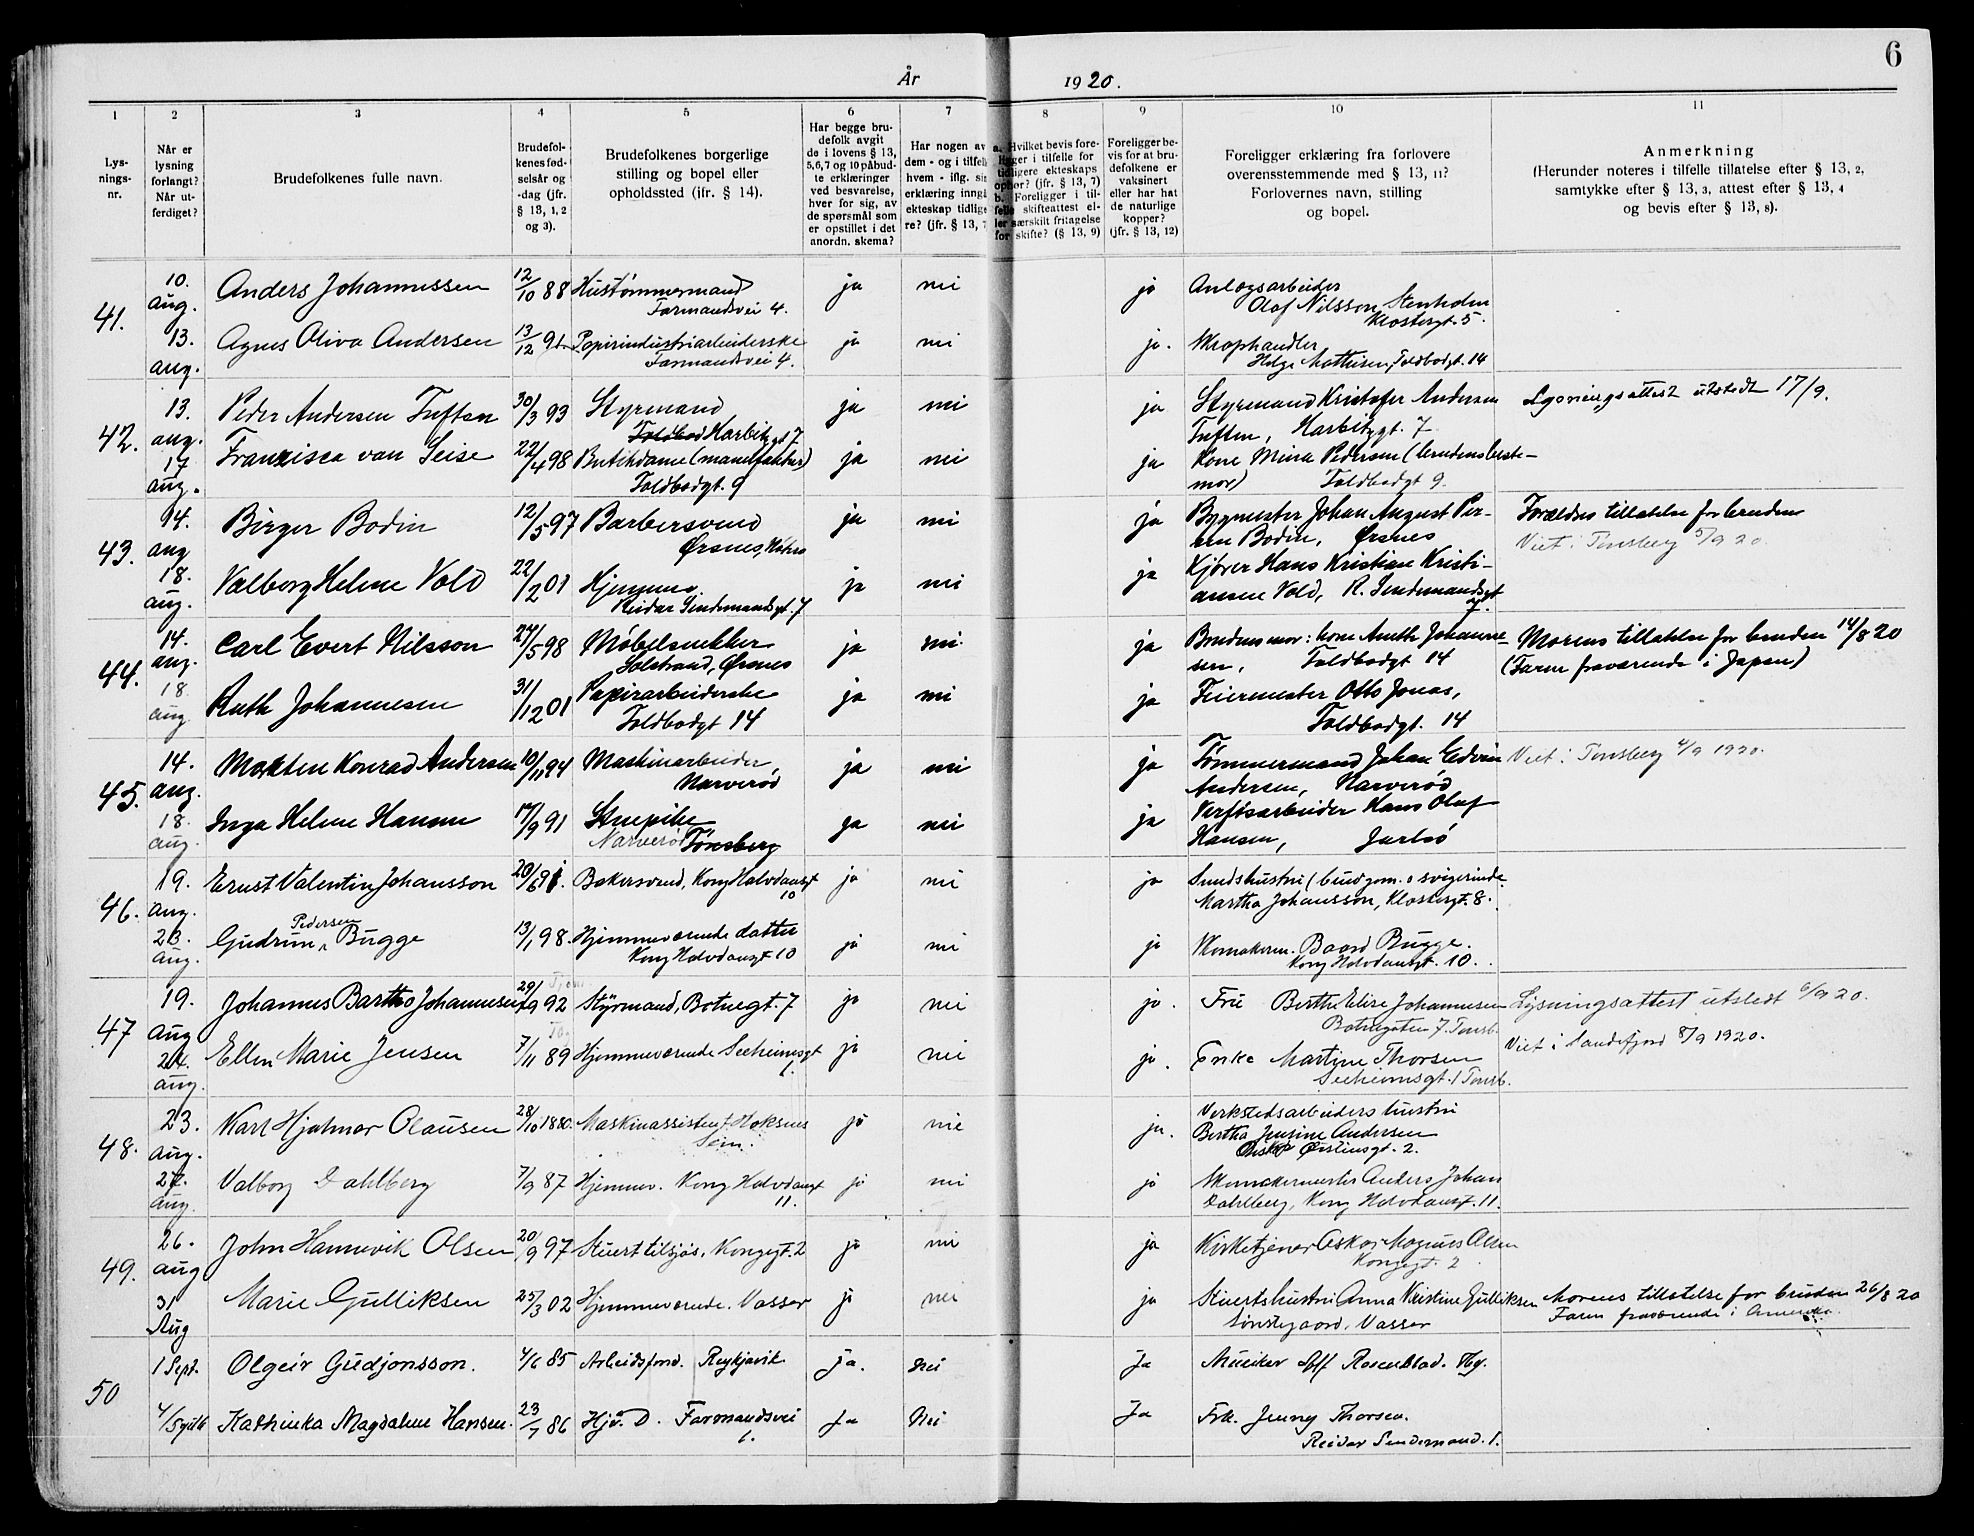 6
År 1920.
1 2 3 4 5 6 7 8 9 10 11
Lys-
nings-
nr.
Når er
lysning
forlangt?
Når ut-
ferdiget?
Brudefolkenes fulle navn.
Brudefol-
kenes fød-
selsår og
-dag (jfr.
§ 13, 1, 2
og 3).
Brudefolkenes borgerlige
stilling og bopel eller
opholdssted (jfr. § 14).
Har begge bru-
defolk avgit
de i lovens § 13,
5,6,7 og 10 påbud-
te erklæringer
ved besvarelse,
hver for sig, av
de spørsmål som
er opstillet i det
anordn. skema?
Har nogen av
dem - og i tilfelle
hvem - iflg. sin
erklæring inngå
ekteskap tidlige
re? (jfr. § 13, 7
a. Hvilket bevis fore-
ligger i tilfelle for
tidligere ekteskaps
ophør? (jfr. § 13, 7)
b. Foreligger i til-
felle skifteattest el-
ler særskilt fritagelse
for skifte? (§ 13, 9)
Foreligger be-
vis for at bru-
defolkene er
vaksinert
eller har hat
de naturlige
kopper?
(jfr. § 13, 12)
Foreligger erklæring fra forlovere
overensstemmende med § 13, 11?
Forlovernes navn, stilling
og bopel.
Anmerkning
(Herunder noteres i tilfelle tillatelse efter § 13, 2,
samtykke efter § 13, 3, attest efter § 13, 4
og bevis efter § 13, 8).
41.
10. aug. Anders Johannessen 12/10 88 Hustømmermand ja nei ja Anlegsarbeider
Farmandsvei 4. Olaf Nilsson Stenholm
Klostergt. 5.
13. aug. Agnes Oliva Andersen 13/12 91 Papirindustriarbeiderske ja nei ja. Skraphandler
Farmandsvei 4. Helge Mathisen, Toldbodgt. 14
42.
13. aug. Peder Andersen Tuften 30/3 93 Styrmand ja nei ja Styrmand Kristofer Andersen Lysningsattest utstedt 17/9.
Toldbod Harbitzgt 7 Tuften, Harbitzgt. 7
17 aug. Franzisca van Seise 22/4 98 Butikdame (manufaktur) ja nei ja Kone Mina Pedersen (brudens beste-
Toldbodgt. 9 mor) Toldbodgt 9.
43.
14. aug Birger Bodin 12/5 97 Barbersvend ja nei ja Bygmester Johan August Per- Forældres tillatelse for bruden
Ørsnes, sen Bodin, Ørsnes Viet i Tønsberg 5/9 20.
18. aug. Valborg Helene Vold 22/2 01 Hjemmev. ja nei ja Kjører Hans Kristian Kristi-
Reidar Sendemandsgt. 7 ansen Vold, R. Sendemandsgt
7.
44.
14. aug. Carl Evert Nilsson 27/5 98 Møbelsnekker ja nei ja Brudens mor: kone Aneth Johanne- Morens tillatelse for bruden 14/8 20
Solstrand, Ørsnes sen, Toldbodgt 14 (Faren fraværende i Japan)
18. aug Ruth Johannesen 31/12 01 Papirarbeiderske ja nei ja Feiermester Otto Jonas,
Toldbodgt 14 Toldbodgt. 14
45.
14. aug. Morten Konrad Andersen 10/11 94 Maskinarbeider, ja nei ja Tømmermand Johan Edvin Viet i Tønsberg 4/9 1920.
Narverød Andersen, Narverød
18. aug. Inga Helene Hansen 17/9 91 Stuepike ja nei ja Verftsarbeider Hans Olaf
Narverød Tønsberg Hansen, Jarlsø
46.
19. aug. Ernst Valentin Johansson 20/6 91. Bakersvend, Kong Halvdansgt ja nei ja Smedshustru (brudgom.s svigerinde
10 Martha Johansson, Klostergt. 8.
23. aug. Gudrun Pedersen Bugge 13/1 98. Hjemmeværende datter ja nei ja Skomakerm. Baard Bugge.
Kong Halvdansgt 10 Kong Halvdansgt. 10.
47
19. aug Johannes Bartho Johannesen 29/9 92 Styrmand, Botnegt. 7 ja nei ja. Frü Berthe Elise Johannesen Lysningsattest utstedt 6/9 20.
Botnegaten 7. Tønsb.
24. aug. Ellen Marie Jensen 7/11 89 Hjemmeværende Seeheimsgt ja nei ja. Enke Martine Thorsen Viet i Sandefjord 8/9 1920.
1 Seeheimsgt. 1 Tønsb.
48.
23. aug. Karl Hjalmar Olausen 28/10 1880. Maskinassistent, Hoksnes ja nei ja. Verkstedsarbeiders hustru
Sem. Bertha Jensine Andersen
Ørstinsgt. 2.
27. aug. Valborg Dahlberg 7/9 87 Hjemmev. Kong Halvdansgt ja nei ja Skomakermester Anders Johan
11. Dahlberg, Kong Halvdansgt. 11.
49.
26. aug John Hannevik Olsen 20/9 97 Stuert tilsjøs, Kongegt. 2 ja nei ja Kirketjener Oskar Magnus Olsen
Kongegt. 2
31 Aug Marie Gulliksen 25/3 02 Hjemmeværende. Vasser ja nei ja Stuertshustru Anna Kristine Gulliksen Morens tillatelse for bruden 26/8 20
Søndegaard, Vasser Faren fraværende i Amerika.
50
1 Sept. Olgeir Gudjonsson. 4/6 85 Arbeidsford. Reykjavik ja. nei Ja Musiker Rosenblad. Tbg.
4/Sept Kathinka Magdalene Hansen. 23/7 86 Hjv. D. Farmandsvei Ja Nei Ja Frk. Jenny Thorsen.
1. Reidar Sendemand. 1.